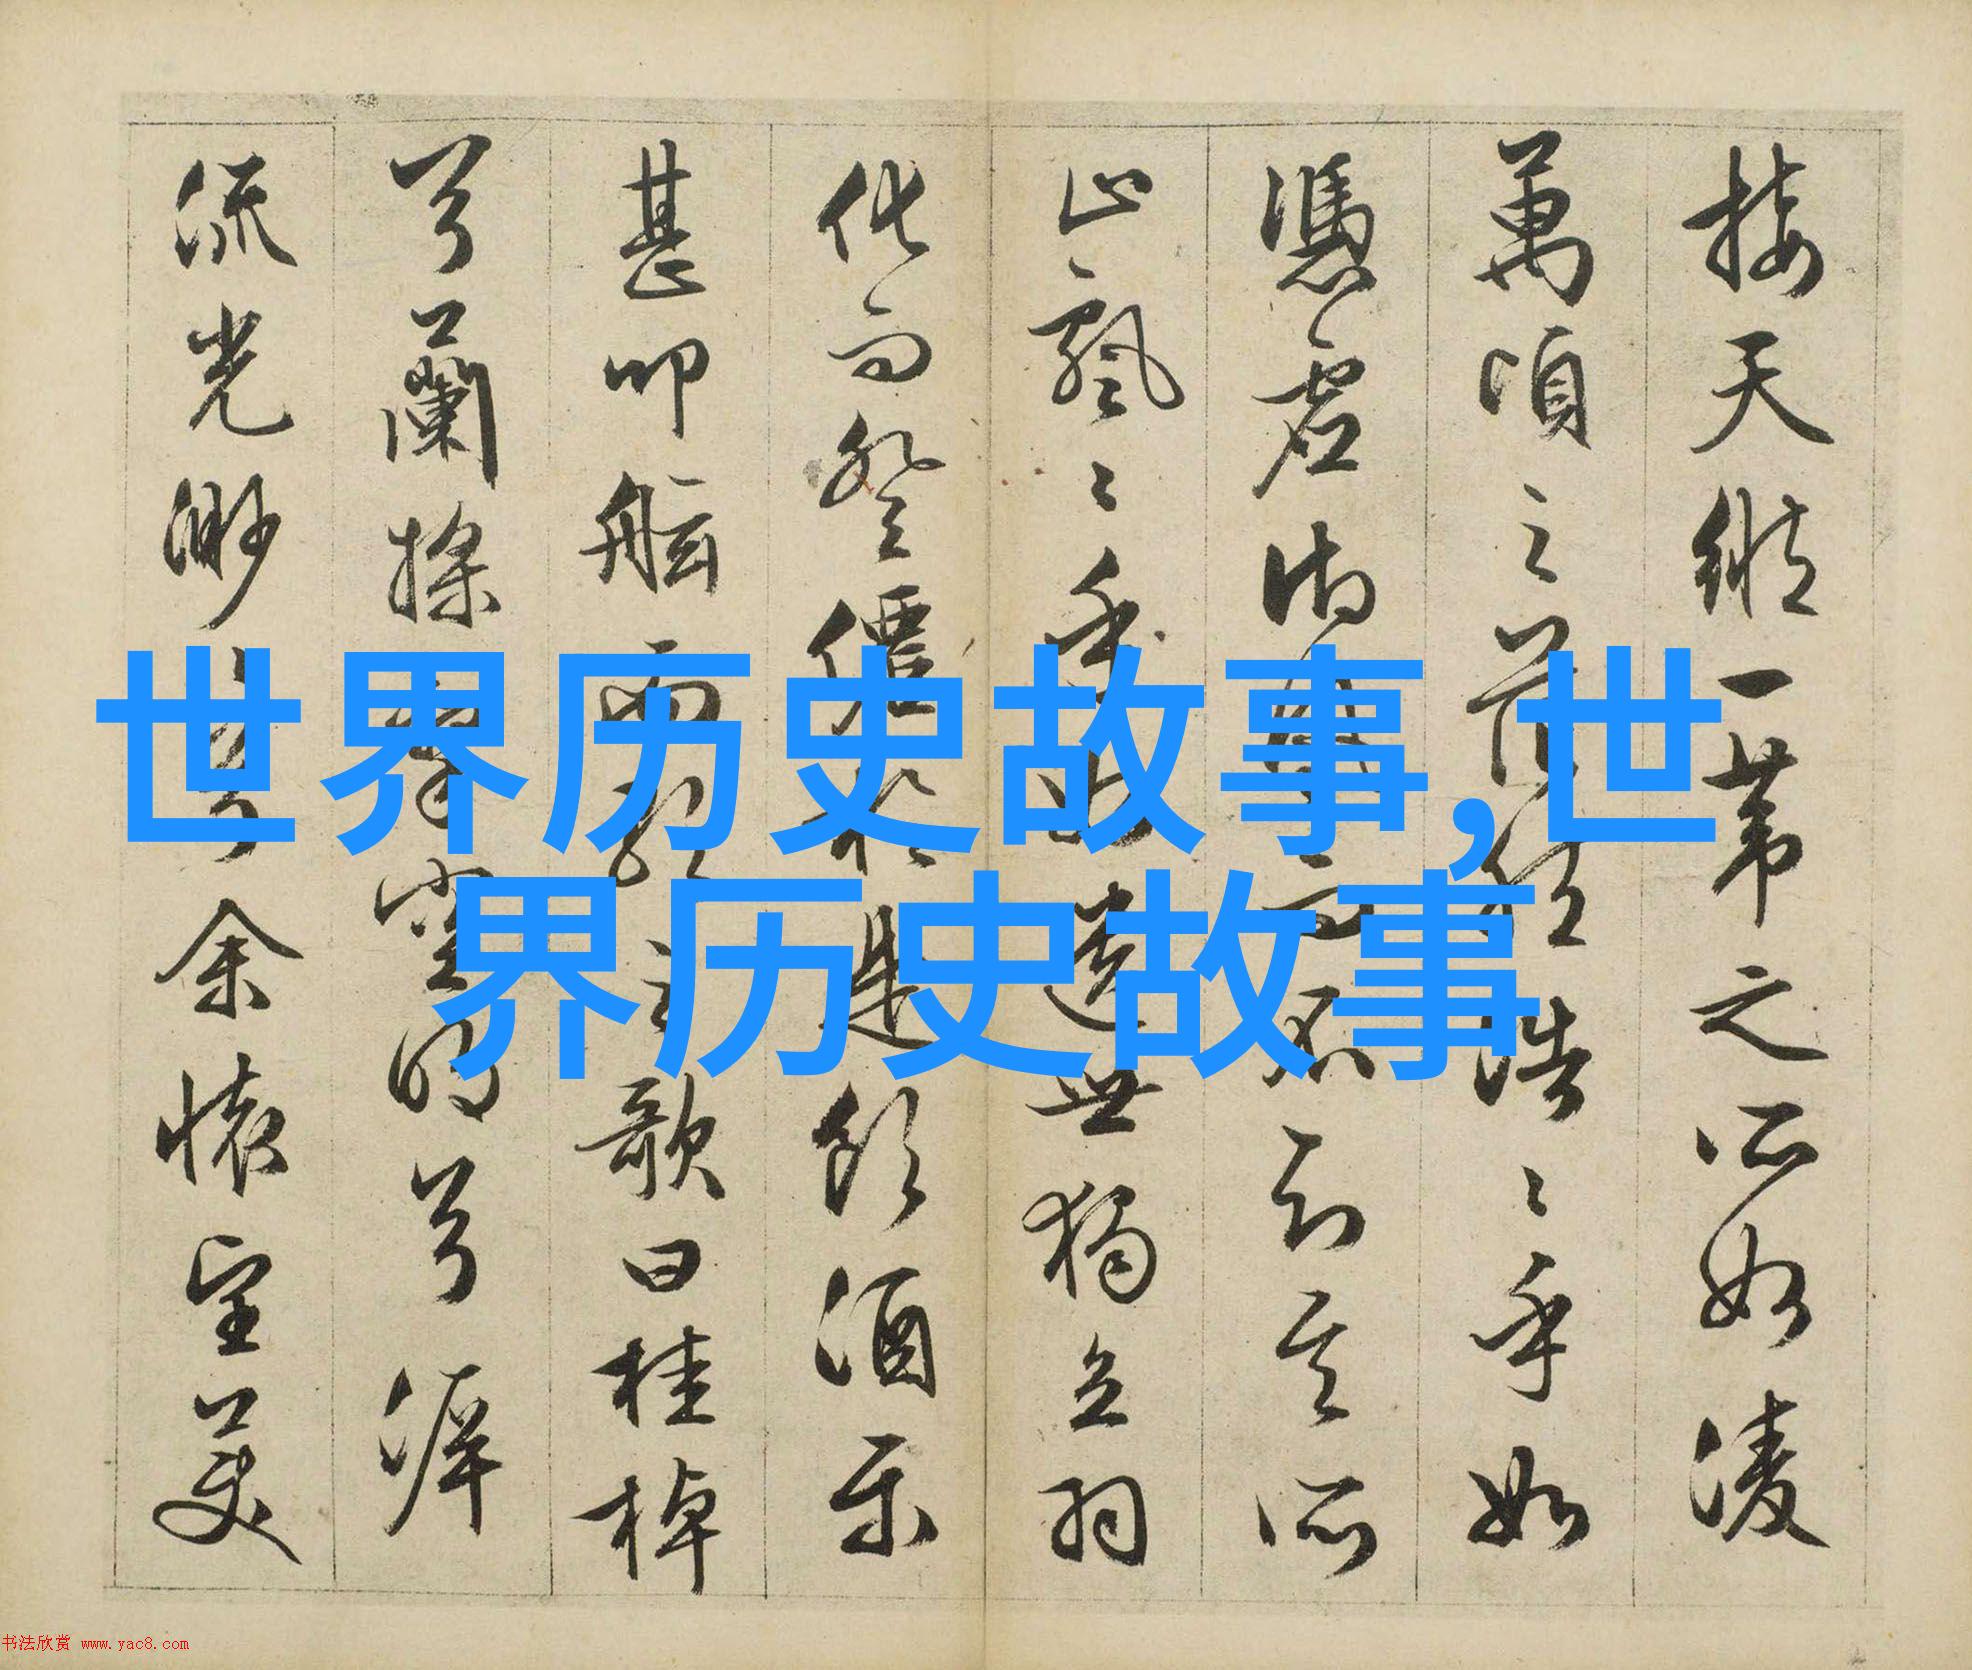 接天縱一葦之所如凌
萬頃之茫然浩〻乎如
憑虛御風而不知其所
止飄〻乎如遺世獨立羽
化而登僊於是飲酒樂
甚叩舷而歌之歌曰桂棹
兮蘭槳擊空明兮泝
流光渺〻兮余懷望美
世界历史故事,世
界历史故事
书法欣赏 www.yac8.com